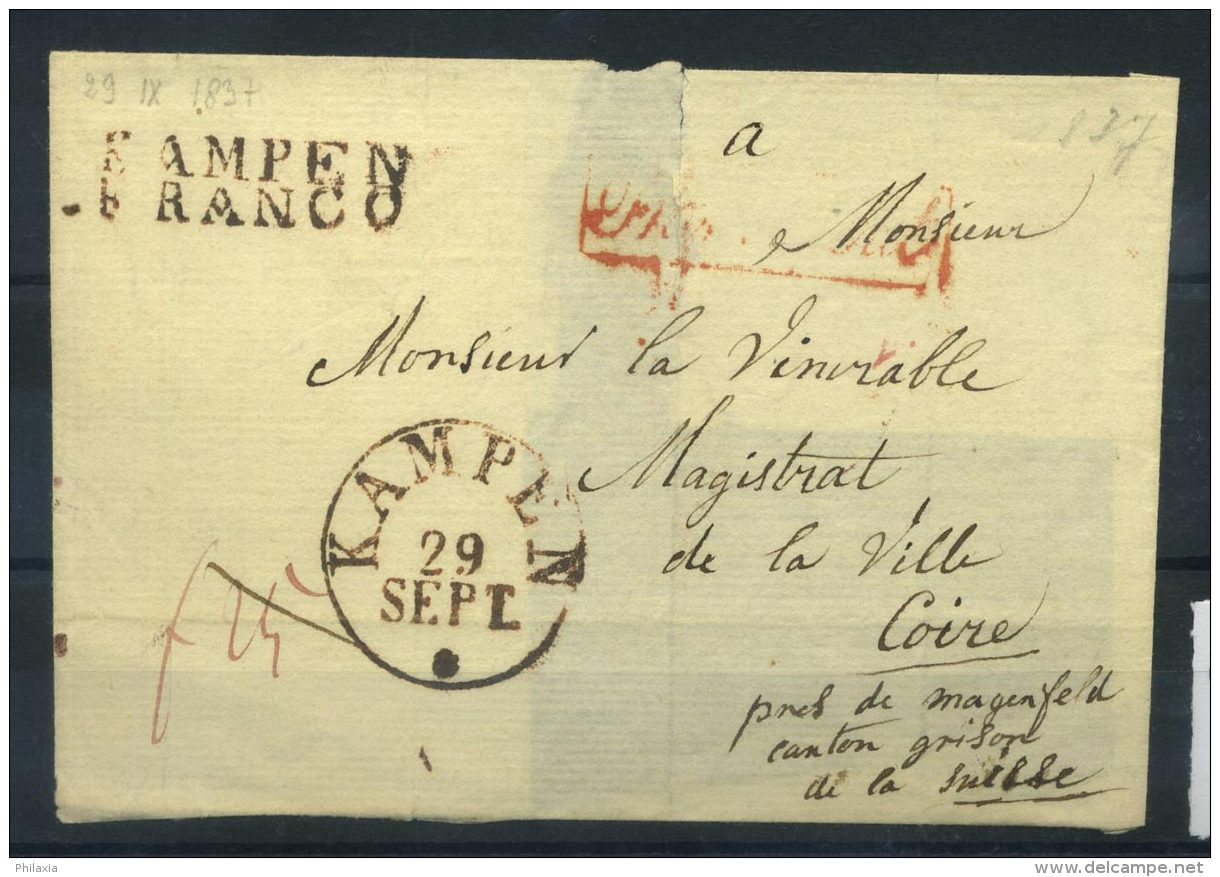 29 IX 1837
KAMPEN
FRANCO
137
a
Monsieur
Monsieur la Vinerable
Magistrat
de la Ville
Coire
pres de magenfeld
canton grison
de la suisse
KAMPEN
29
SEPT
Philaxia
www.delcampe.net